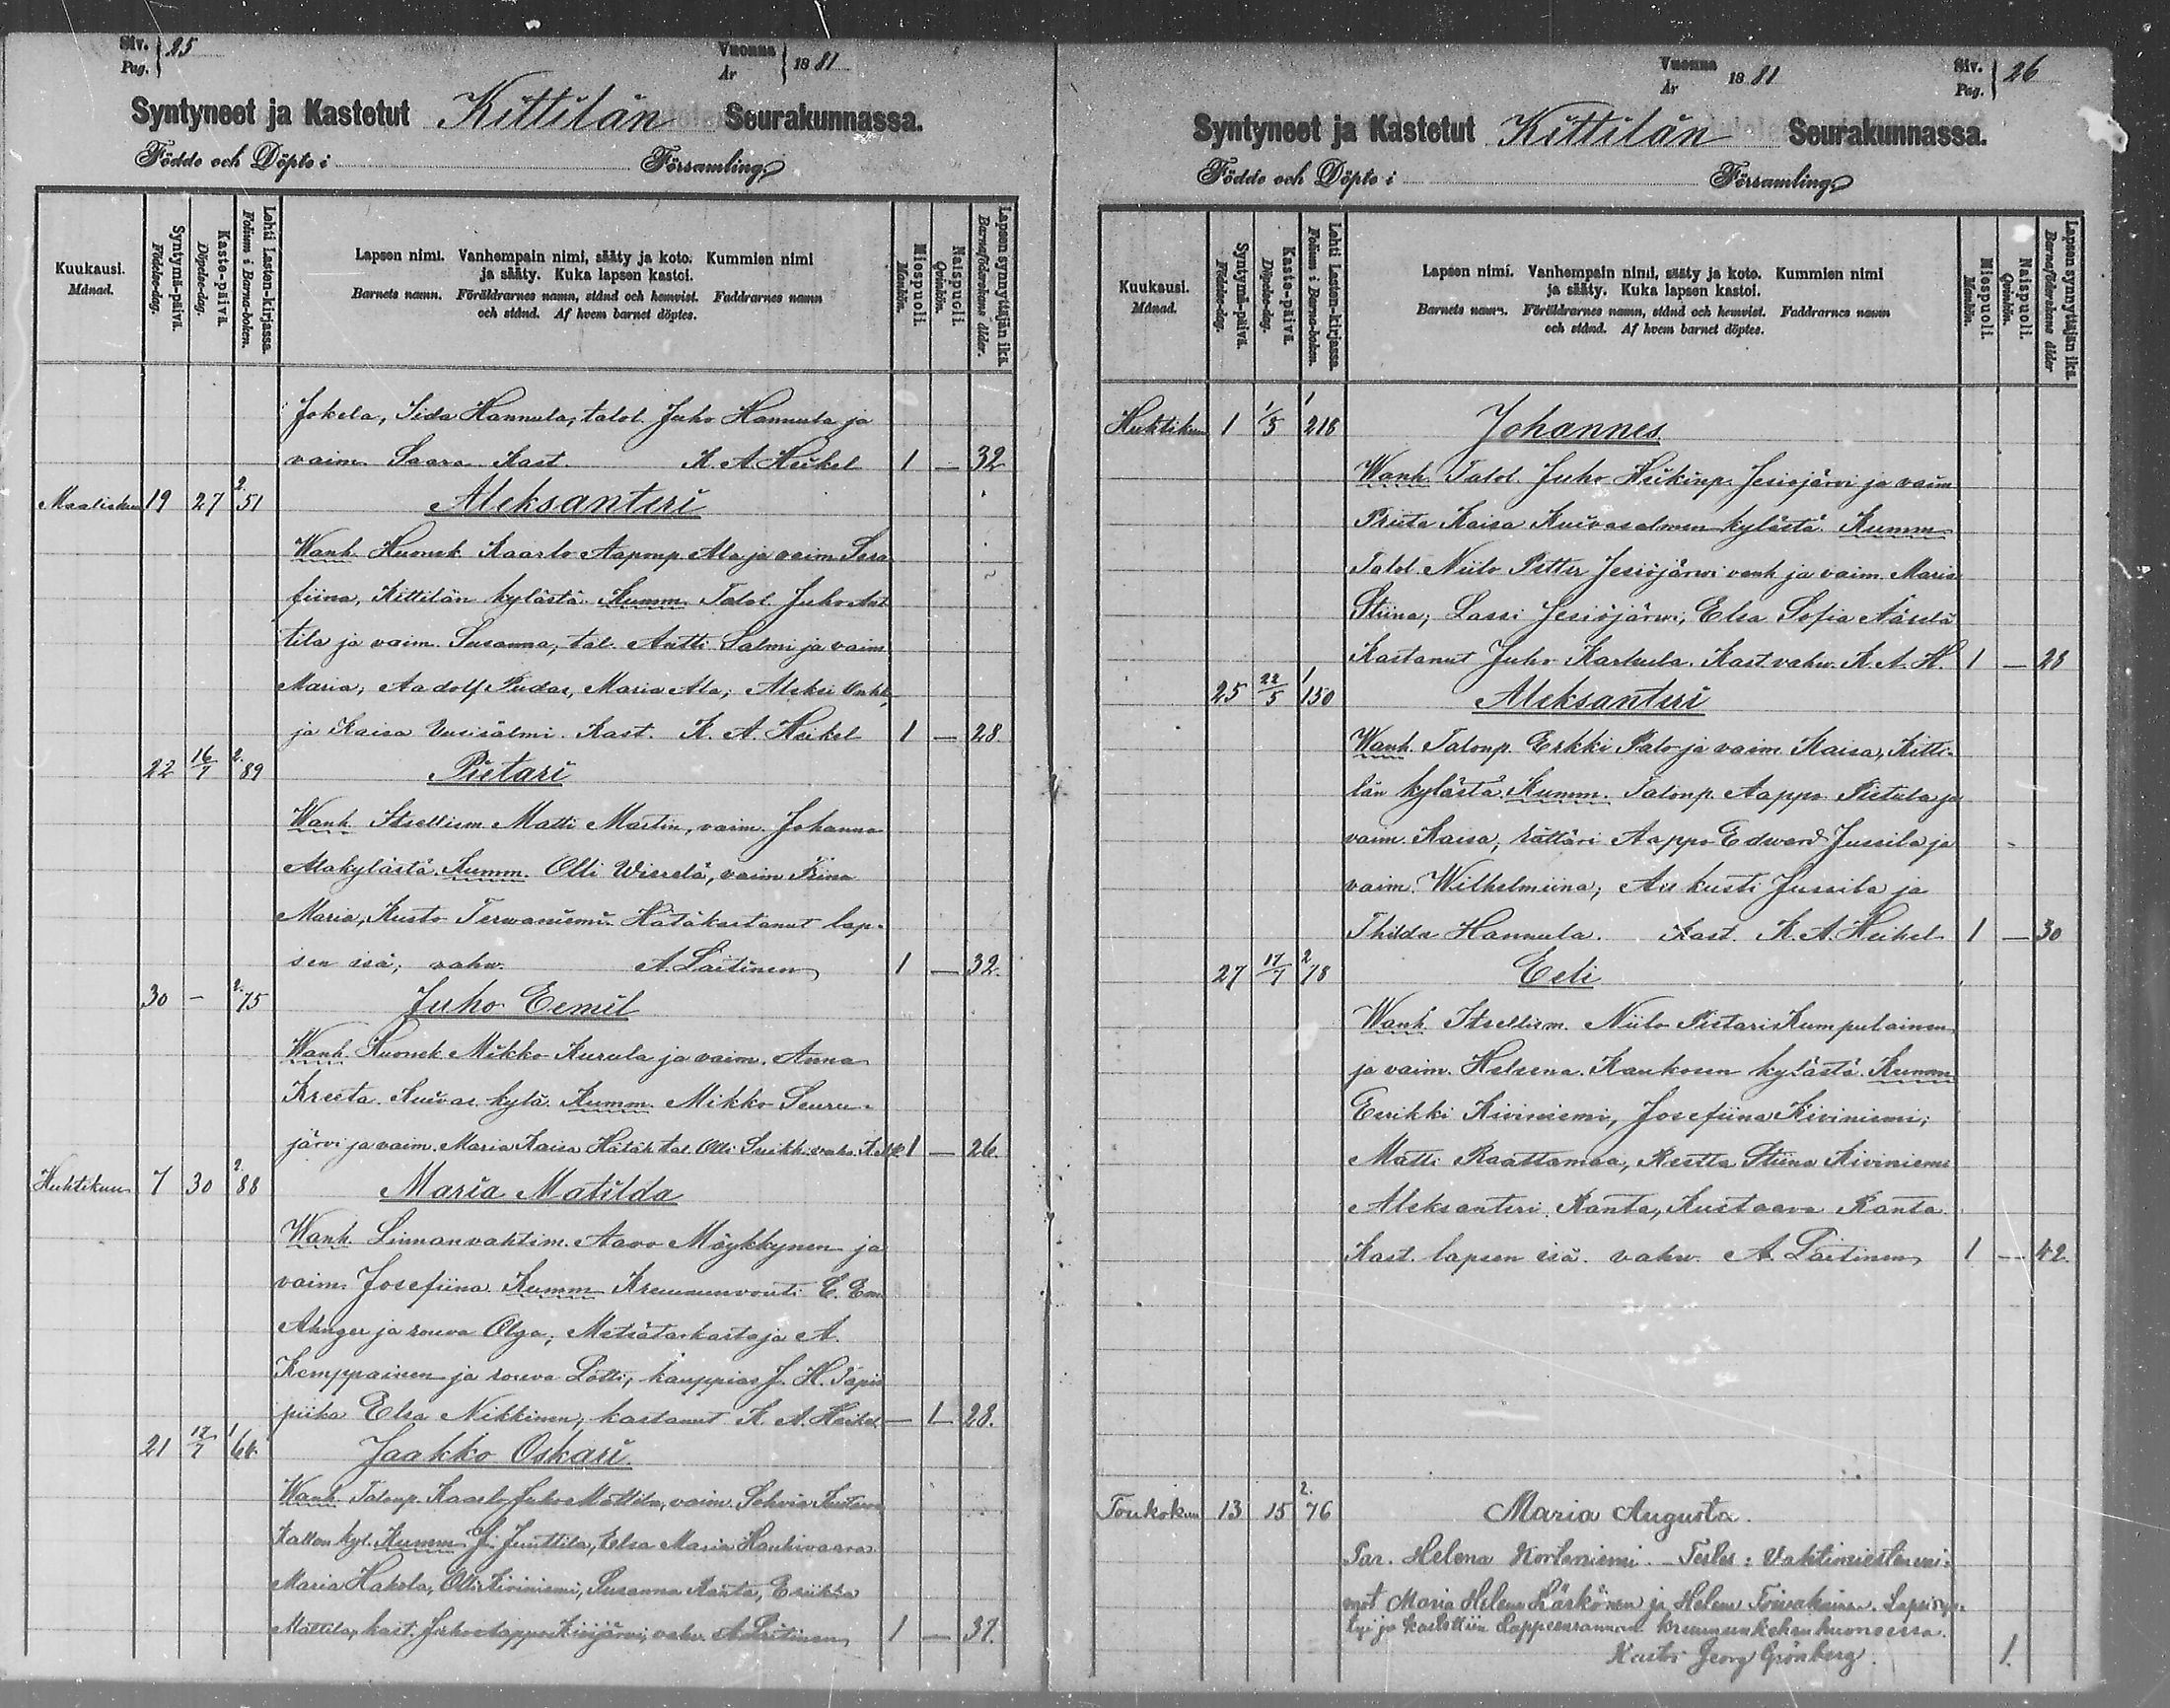 Siv. 25
Pag.
Vuonna 1881
År
Syntyneet ja Kastetut Kittilän Seurakunnassa.
Födde och Döpte i Församling
Kuukausi.
Månad.
Syntymä-päivä.
Födelse-dag.
Kaste-päivä.
Döpelse-dag.
Lehti Lasten-kirjassa.
Folium i Barna-boken.
Lapsen nimi. Vanhempain nimi, sääty ja koto. Kummien nimi
ja sääty. Kuka lapsen kastoi.
Barnets namn. Föräldrarnes namn, stånd och hemvist. Faddrarnes namn
och stånd. Af hvem barnet döptes.
Miespuoli.
Mankön.
Naispuoli.
Qvinkön.
Lapsen synnyttäjän ikä.
Barnaföderskans ålder.
Jokela, Iida Hannula, talol. Juho Hannula ja
vaim. Saara Kast. K. A. Heikel 1 — 32
Maalisku 19 27 2. 51 Aleksanteri
Wanh. Huonek Kaarlo Aaponp. Ala ja vaim Sera
fiina, Kittilän kylästä. Kumm. Talol. Juho Ant
tila ja vaim. Susanna, tal. Antti Salmi ja vaim
Maria, Aadolf Pudas, Maria Ala, Aleksi
ja Kaisa Uusisalmi. Kast. K. A. Heikel 1 — 28.
22 16/7 2. 89 Pietari
Wanh. Itsellism. Matti Martin, vaim. Johanna
Alakylästä. Kumm. Olli Wierelä, vaim
Maria, Kusto Terwaniemi. Hätäkastanut lap-
sen isä, vahv. A. Laitinen 1 — 32.
30 — 2. 75 Juho Eemil
Wanh. Huonek Mikko Kurula ja vaim. Anna
Kreeta. Kuivas. kylä. Kumm. Mikko Seuru-
järvi ja vaim. Maria Kaisa Hätäk. tal. Olli vahv. 1 — 26.
Huhtikuu 7 30 2. 88 Maria Matilda
Wanh. Linnanvahtim. Aaro Möykkynen ja
vaim. Josefiina. Kumm. Kruununvouti C. Em
Ahnger ja rouva Olga, Metsätarkastaja A.
Kemppainen ja rouva Lotti, kauppias J. H.
piika Elsa Nikkinen, kastanut K. A. Heikel — 1 — 28.
21 17/7 1 64 Jaakko Oskari.
Wanh. Talonp. Kaarlo Juho Mattila, vaim.
Kallon kyl. Kumm. J. Junttila, Elsa Maria Hanhivaara
Maria Hakola, Olli Kiviniemi, Susanna Ranta, Eriikka
Mattila, kast. Juho Aappo Kivijärvi, vahv. A. Laitinen 1 — 37.
Vuonna 1881
År
Siv. 26
Pag.
Syntyneet ja Kastetut Kittilän Seurakunnassa.
Födde och Döpte i Församling
Kuukausi.
Månad.
Syntymä-päivä.
Födelse-dag.
Kaste-päivä.
Döpelse-dag.
Lehti Lasten-kirjassa
Folium i Barna-boken.
Lapsen nimi. Vanhempain nimi, sääty ja koto. Kummien nimi
ja sääty. Kuka lapsen kastoi.
Barnets namn. Föräldrarnes namn, stånd och hemvist. Faddrarnes namn
och stånd. Af hvem barnet döptes.
Miespuoli.
Mankön.
Naispuoli.
Qvinkön.
Lapsen synnyttäjän ikä.
Barnaföderskans ålder
Huhtikuu 1 1/5 1 218 Johannes
Wanh. Talol. Juho Heikinp. Jesiöjärvi ja vaim
Priita Kaisa Kuivasalmen kylästä Kumm
Talol. Niilo Petter Jesiöjärvi vanh ja vaim. Maria
Stiina, Lassi Jesiöjärvi, Elsa Sofia Näselä
Kastanut Juho Karhula. Kast vahv. K. A. H. 1 — 28
25 22/5 1 150 Aleksanteri
Wanh. Talonp. Erkki Palo ja vaim Kaisa, Kitti-
län kylästä. Kumm. Talonp. Aappo Pietula ja
vaim. Kaisa, rättäri Aappo Edward Jussila ja
vaim. Wilhelmiina, Au kusti Jussila ja
Thilda Hannula. Kast. K. A. Heikel 1 — 30
27 17/7 2 78 Eeli
Wanh. Itsellism. Niilo Pietari Kumpulainen
ja vaim. Helena. Kaukosen kylästä. Kumm
Eerikki Kiviniemi, Josefiina Kiviniemi,
Matti Raattamaa, Reetta Stiina Kiviniemi
Aleksanteri Ranta, Kustaava Ranta
Kast. lapsen isä. vahv. A. Laitinen 1 — 42.
Toukokuu 13 15 2. 76 Maria Augusta.
Par. Helena Korteniemi. — Testes: Vahtimiesten vai-
mot Maria Helena Kärkönen ja Helena Toivakainen. Lapsi syn-
tyi ja kastettiin Lappeenrannan kruununkehruuhuoneessa.
Kastoi Georg Grönberg. 1.